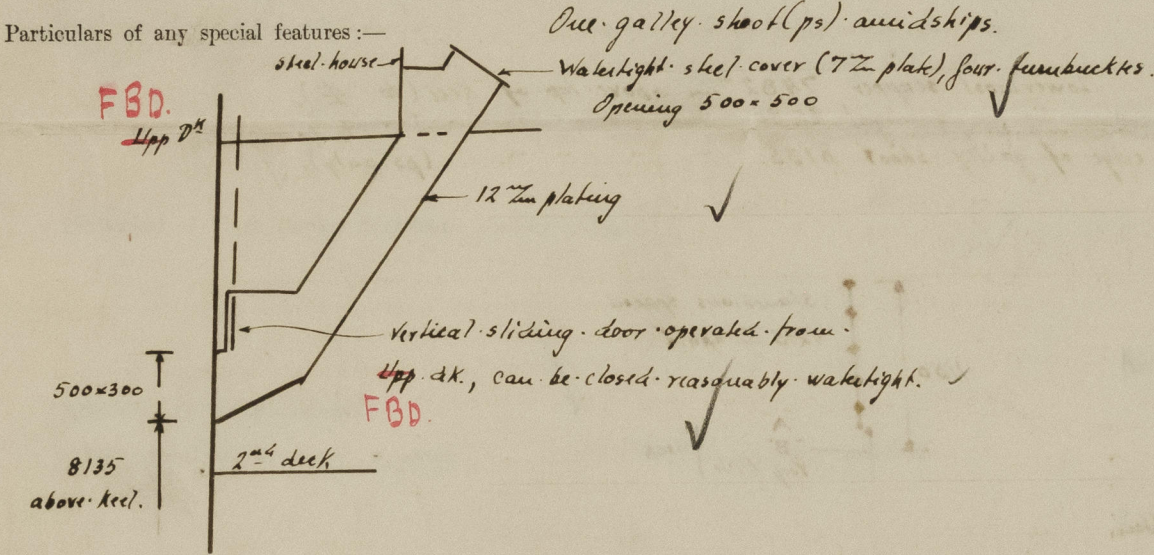 Particulars of any special features:—
One galley shoot (ps) amidships.
steel house
Watertight steel cover (7 m/m plate), four turnbuckles.
Opening 500 × 500
FBD.
Upp Dk
12 m/m plating
vertical sliding door operated from
Upp. dk., can be closed reasonably watertight.
FBD.
500×300
8135
above keel.
2nd deck